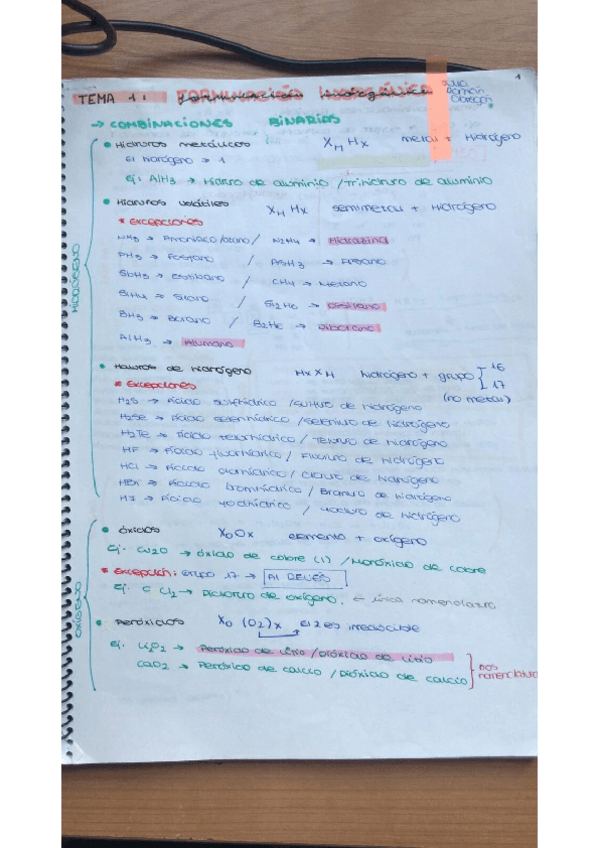 1
TEMA 1: FORMULACIÓN INORGÁNICA
→ COMBINACIONES BINARIAS
• Hidruros metálicos XM Hx metal + Hidrógeno
El hidrógeno → 1
Ej: AlH3 → Hidruro de aluminio / Trihidruro de aluminio
• Hidruros volátiles XM Hx semimetal + Hidrógeno
* Excepciones
NH3 → Amoniaco/azano / N2H4 → Hidrazina
PH3 → Fosfano / AsH3 → Arsano
SbH3 → Estibano / CH4 → Metano
SiH4 → Silano / Si2H6 → Disilano
BH3 → Borano / B2H6 → Diborano
AlH3 → Alumano
• Haluros de hidrógeno Hx XH hidrógeno + grupo 16
17
(no metal)
* Excepciones
H2S → Ácido sulfhídrico / Sulfuro de hidrógeno
H2Se → Ácido selenhídrico / Seleniuro de hidrógeno
H2Te → Ácido telurhídrico / Teluro de hidrógeno
HF → Ácido fluorhídrico / Fluoruro de hidrógeno
HCl → Ácido clorhídrico / Cloruro de hidrógeno
HBr → Ácido bromhídrico / Bromuro de hidrógeno
HI → Ácido yodhídrico / Yoduro de hidrógeno
HIDRÓGENO
• Óxidos XO Ox elemento + oxígeno
Ej: Cu2O → óxido de cobre (I) / Monóxido de cobre
* Excepción: Grupo 17 → AL REVÉS
Ej. O Cl2 → Dicloruro de oxígeno. ← única nomenclatura
• Peróxidos XO (O2)x El 2 es irreducible
Ej. Li2O2 → Peróxido de litio / Dióxido de litio
CaO2 → Peróxido de calcio / Dióxido de calcio
dos
nomenclatura
OXÍGENO